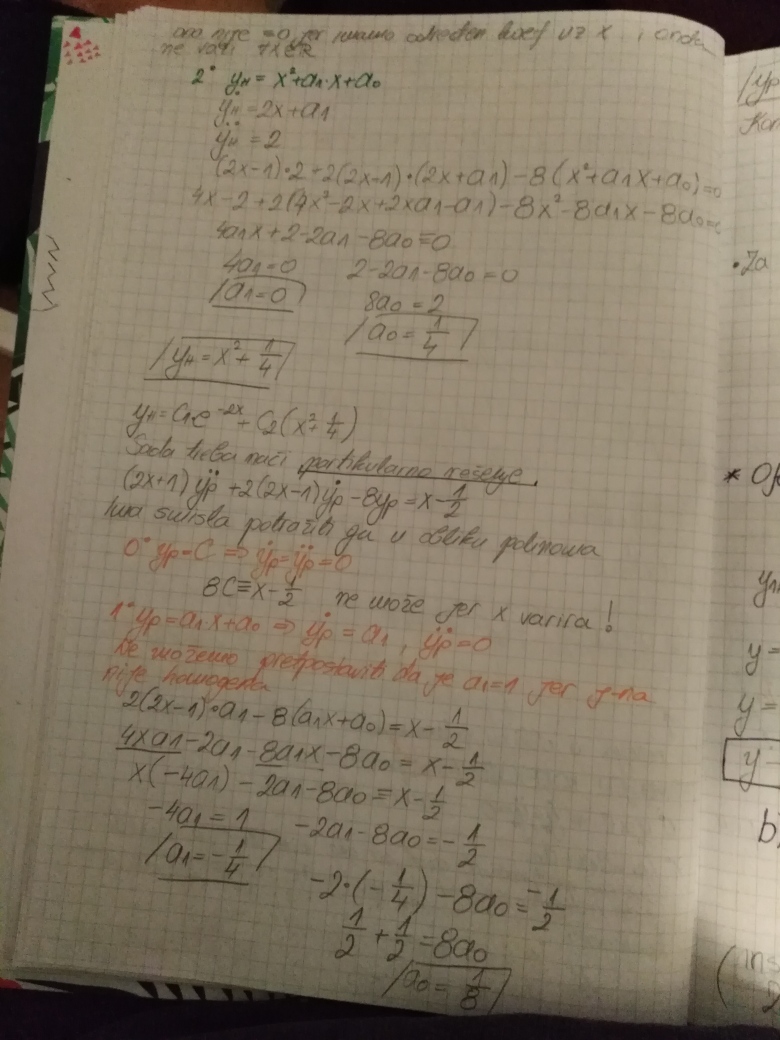 ono nije =0, jer imamo određen koef uz x, onda
ne važi ∀x∈R
2° yH = x²+a1·x+a0
ẏH = 2x+a1
ÿH = 2
(2x-1)·2+2(2x-1)·(2x+a1)-8(x²+a1x+a0)=0
4x-2+2(4x²-2x+2xa1-a1)-8x²-8a1x-8a0=0
4a1x+2-2a1-8a0=0
4a1=0 2-2a1-8a0=0
a1=0 8a0=2
a0=1/4
yH=x²+1/4
yH=C1e^-2x+C2(x²+1/4)
Sada treba naći partikularno rešenje.
(2x+1)ÿp+2(2x-1)ẏp-8yp=x-1/2
Ima smisla potražiti ga u obliku polinoma
0° yp=C ⇒ ẏp=ÿp=0
8C≡x-1/2 ne može jer x varira!
1° yp=a1·x+a0 ⇒ ẏp=a1, ÿp=0
Ne možemo pretpostaviti da je a1=1 jer j-na
nije homogena
2(2x-1)·a1-8(a1x+a0)=x-1/2
4xa1-2a1-8a1x-8a0=x-1/2
x(-4a1)-2a1-8a0=x-1/2
-4a1=1 -2a1-8a0=-1/2
a1=-1/4
-2·(-1/4)-8a0=-1/2
1/2+1/2=8a0
a0=1/8
yp
Kon
•Za
*
y=
y=
y=
b)